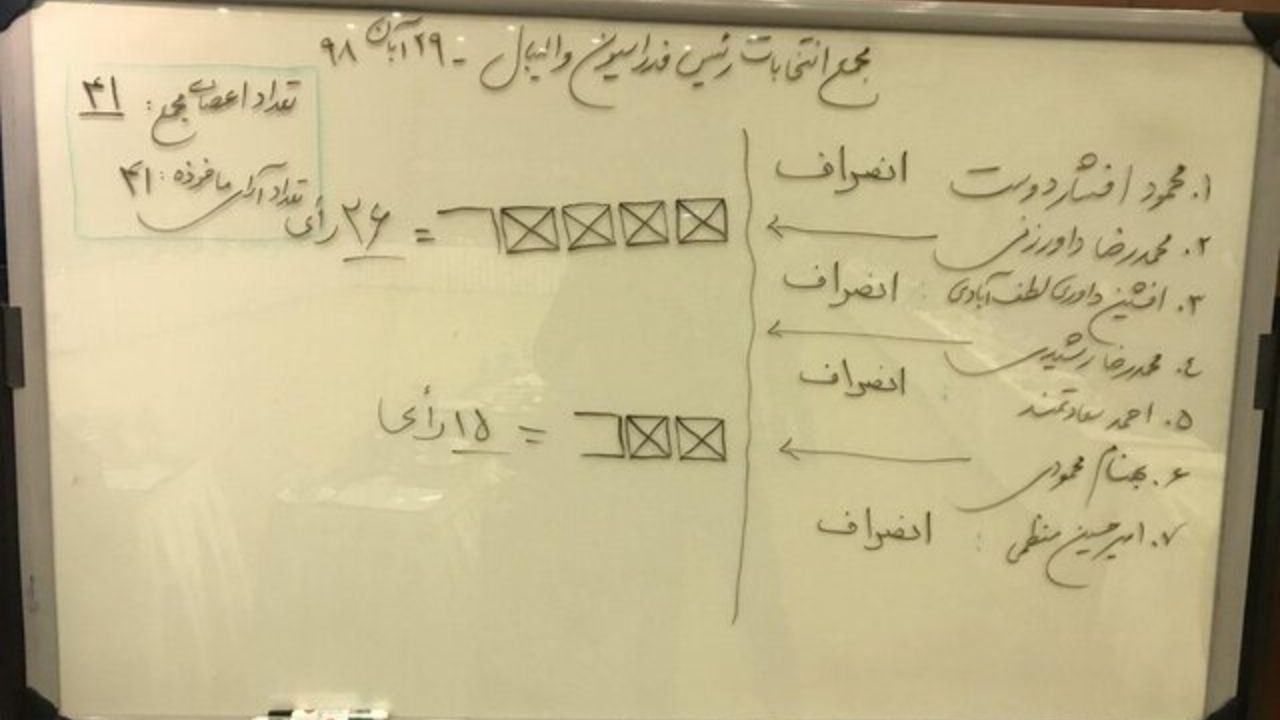 مجمع انتخابات رئیس فدراسیون والیبال - ۲۹ آبان ۹۸
تعداد اعضای مجمع: ۴۱
تعداد آرای ماخوذه: ۴۱
۱. محمود افشاردوست انصراف
۲. محمدرضا داورزنی = ۲۶ رأی
۳. افشین داوری لطف آبادی: انصراف
٤. محمدرضا رشیدی
۵. احمد سعادتمند انصراف
۶. بهنام محمودی = ۱۵ رأی
۷. امیرحسین منظمی: انصراف